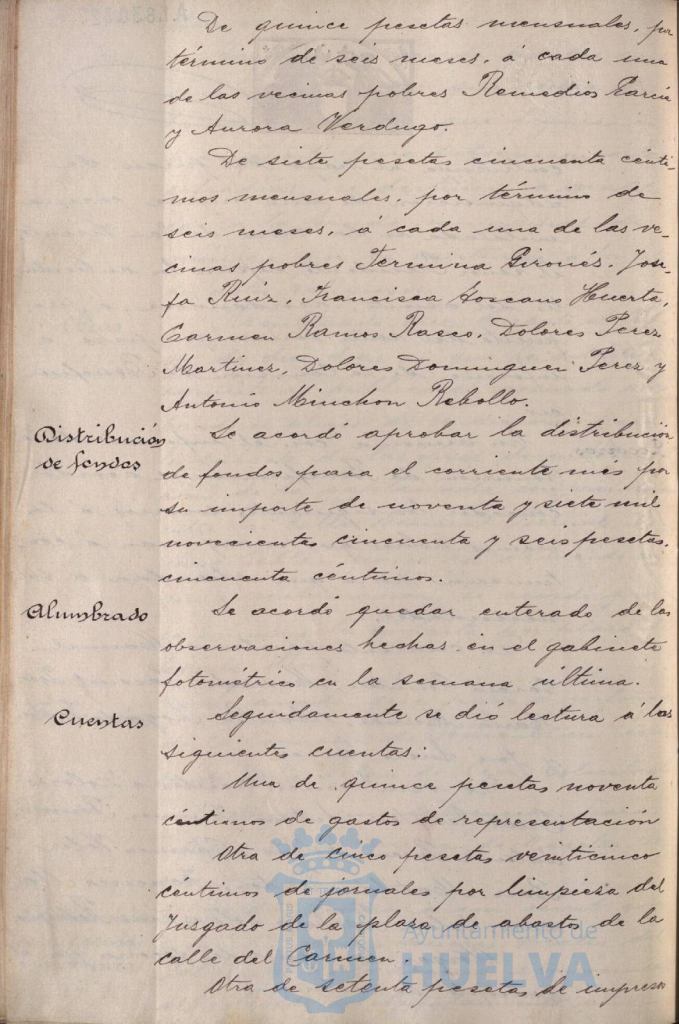 De quince pesetas mensuales, por
término de seis meses, á cada una
de las vecinas pobres Remedios García
y Aurora Verdugo.
De siete pesetas cincuenta cénti-
mos mensuales, por término de
seis meses, á cada una de las ve-
cinas pobres Fermina Gironés, Jose-
fa Ruiz, Francisca Toscano Huerta,
Carmen Ramos Rasco, Dolores Perez
Martinez, Dolores Dominguez Perez y
Antonio Minchon Rebollo.
Distribución
de fondos
Se acordó aprobar la distribución
de fondos para el corriente mes por
su importe de noventa y siete mil
novecientas cincuenta y seis pesetas,
cincuenta céntimos.
Alumbrado
Se acordó quedar enterado de las
observaciones hechas en el gabinete
fotométrico en la semana última.
Cuentas
Seguidamente se dió lectura á las
siguientes cuentas:
Una de quince pesetas noventa
céntimos de gastos de representación
Otra de cinco pesetas veinticinco
céntimos de jornales por limpieza del
Juzgado de la plaza de abastos de la
calle del Carmen.
Otra de setenta pesetas de impresos
Ayuntamiento de
HUELVA